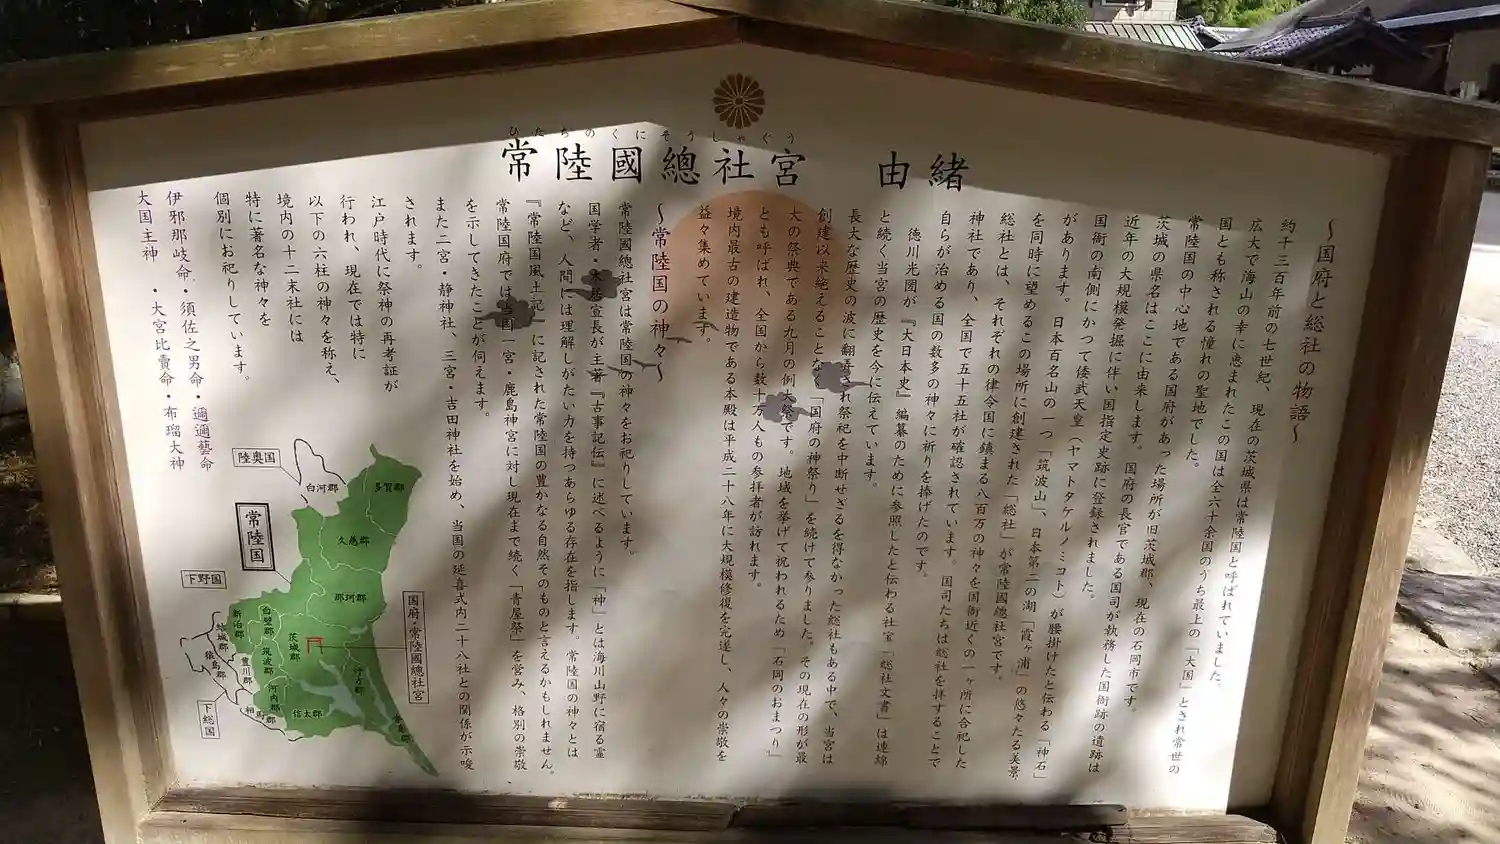 ひたちのくにそうしゃぐう
常陸國總社宮 由緒
～国府と総社の物語～
約千三百年前の七世紀、現在の茨城県は常陸国と呼ばれていました。
広大で海山の幸に恵まれたこの国は全六十余国のうち最上の「大国」とされ常世の
国とも称される憧れの聖地でした。
常陸国の中心地である国府があった場所が旧茨城郡、現在の石岡市です。
茨城の県名はここに由来します。国府の長官である国司が執務した国衙跡の遺跡は
近年の大規模発掘に伴い国指定史跡に登録されました。
国衙の南側にかつて倭武天皇（ヤマトタケルノミコト）が腰掛けたと伝わる「神石」
があります。日本百名山の一つ「筑波山」、日本第二の湖「霞ヶ浦」の悠々たる美景
を同時に望めるこの場所に創建された「総社」が常陸國總社宮です。
総社とは、それぞれの律令国に鎮まる八百万の神々を国衙近くの一ヶ所に合祀した
神社であり、全国で五十五社が確認されています。国司たちは総社を拝することで
自らが治める国の数多の神々に祈りを捧げたのです。
徳川光圀が『大日本史』編纂のために参照したと伝わる社宝「総社文書」は連綿
と続く当宮の歴史を今に伝えています。
長大な歴史の波に翻弄され祭祀を中断せざるを得なかった総社もある中で、当宮は
創建以来絶えることなく「国府の神祭り」を続けて参りました。その現在の形が最
大の祭典である九月の例大祭です。地域を挙げて祝われるため「石岡のおまつり」
とも呼ばれ、全国から数十万人もの参拝者が訪れます。
境内最古の建造物である本殿は平成二十八年に大規模修復を完遂し、人々の崇敬を
益々集めています。
～常陸国の神々～
常陸國總社宮は常陸国の神々をお祀りしています。
国学者・本居宣長が主著『古事記伝』に述べるように「神」とは海川山野に宿る霊
など、人間には理解しがたい力を持つあらゆる存在を指します。常陸国の神々とは
『常陸国風土記』に記された常陸国の豊かなる自然そのものと言えるかもしれません。
常陸国府では当国一宮・鹿島神宮に対し現在まで続く「青屋祭」を営み、格別の崇敬
を示してきたことが伺えます。
また二宮・静神社、三宮・吉田神社を始め、当国の延喜式内二十八社との関係が示唆
されます。
江戸時代に祭神の再考証が
行われ、現在では特に
以下の六柱の神々を称え、
境内の十二末社には
特に著名な神々を
個別にお祀りしています。
伊邪那岐命・須佐之男命・邇邇藝命
大国主神・大宮比賣命・布瑠大神
陸奥国
白河郡
多賀郡
常陸国
久慈郡
下野国
那珂郡
国府・常陸國總社宮
新治郡
白壁郡
茨城郡
結城郡
筑波郡
猿島郡
豊川郡
河内郡
行方郡
相馬郡
信太郡
香島郡
下総国